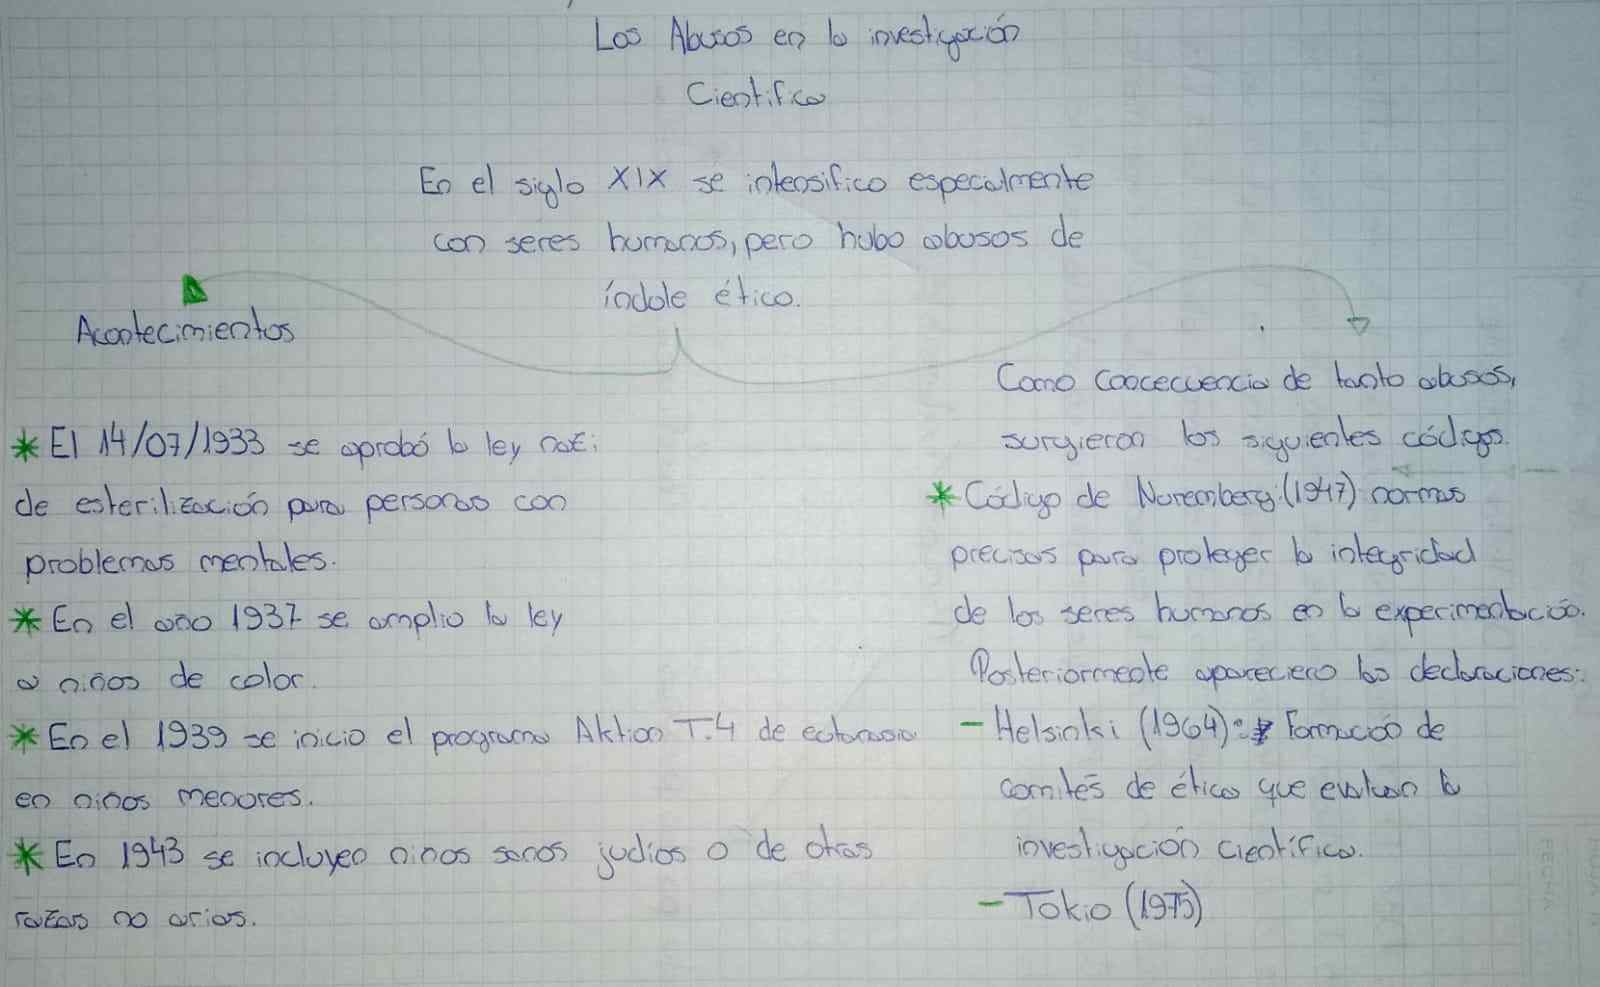 Los Abusos en la investigación
Cientifica
En el siglo XIX se intensifico especialmente
con seres humanos, pero hubo abusos de
índole ético.
Acontecimientos
* El 14/07/1933 se aprobó la ley nazi
de esterilización para personas con
problemas mentales.
* En el año 1937 se amplio la ley
a niños de color.
* En el 1939 se inicio el programa Aktion T.4 de eutanasia
en niños menores.
* En 1943 se incluyen niños sanos judíos o de otras
razas no arias.
Como concecuencia de tanto abusos,
surgieron los siguientes códigos.
* Código de Nuremberg:(1947) normas
precisas para proteger la integridad
de los seres humanos en la experimentación.
Posteriormente apareciero las declaraciones:
- Helsinki (1964): Formación de
comités de ética que evaluan la
investigación científica.
- Tokio (1975)